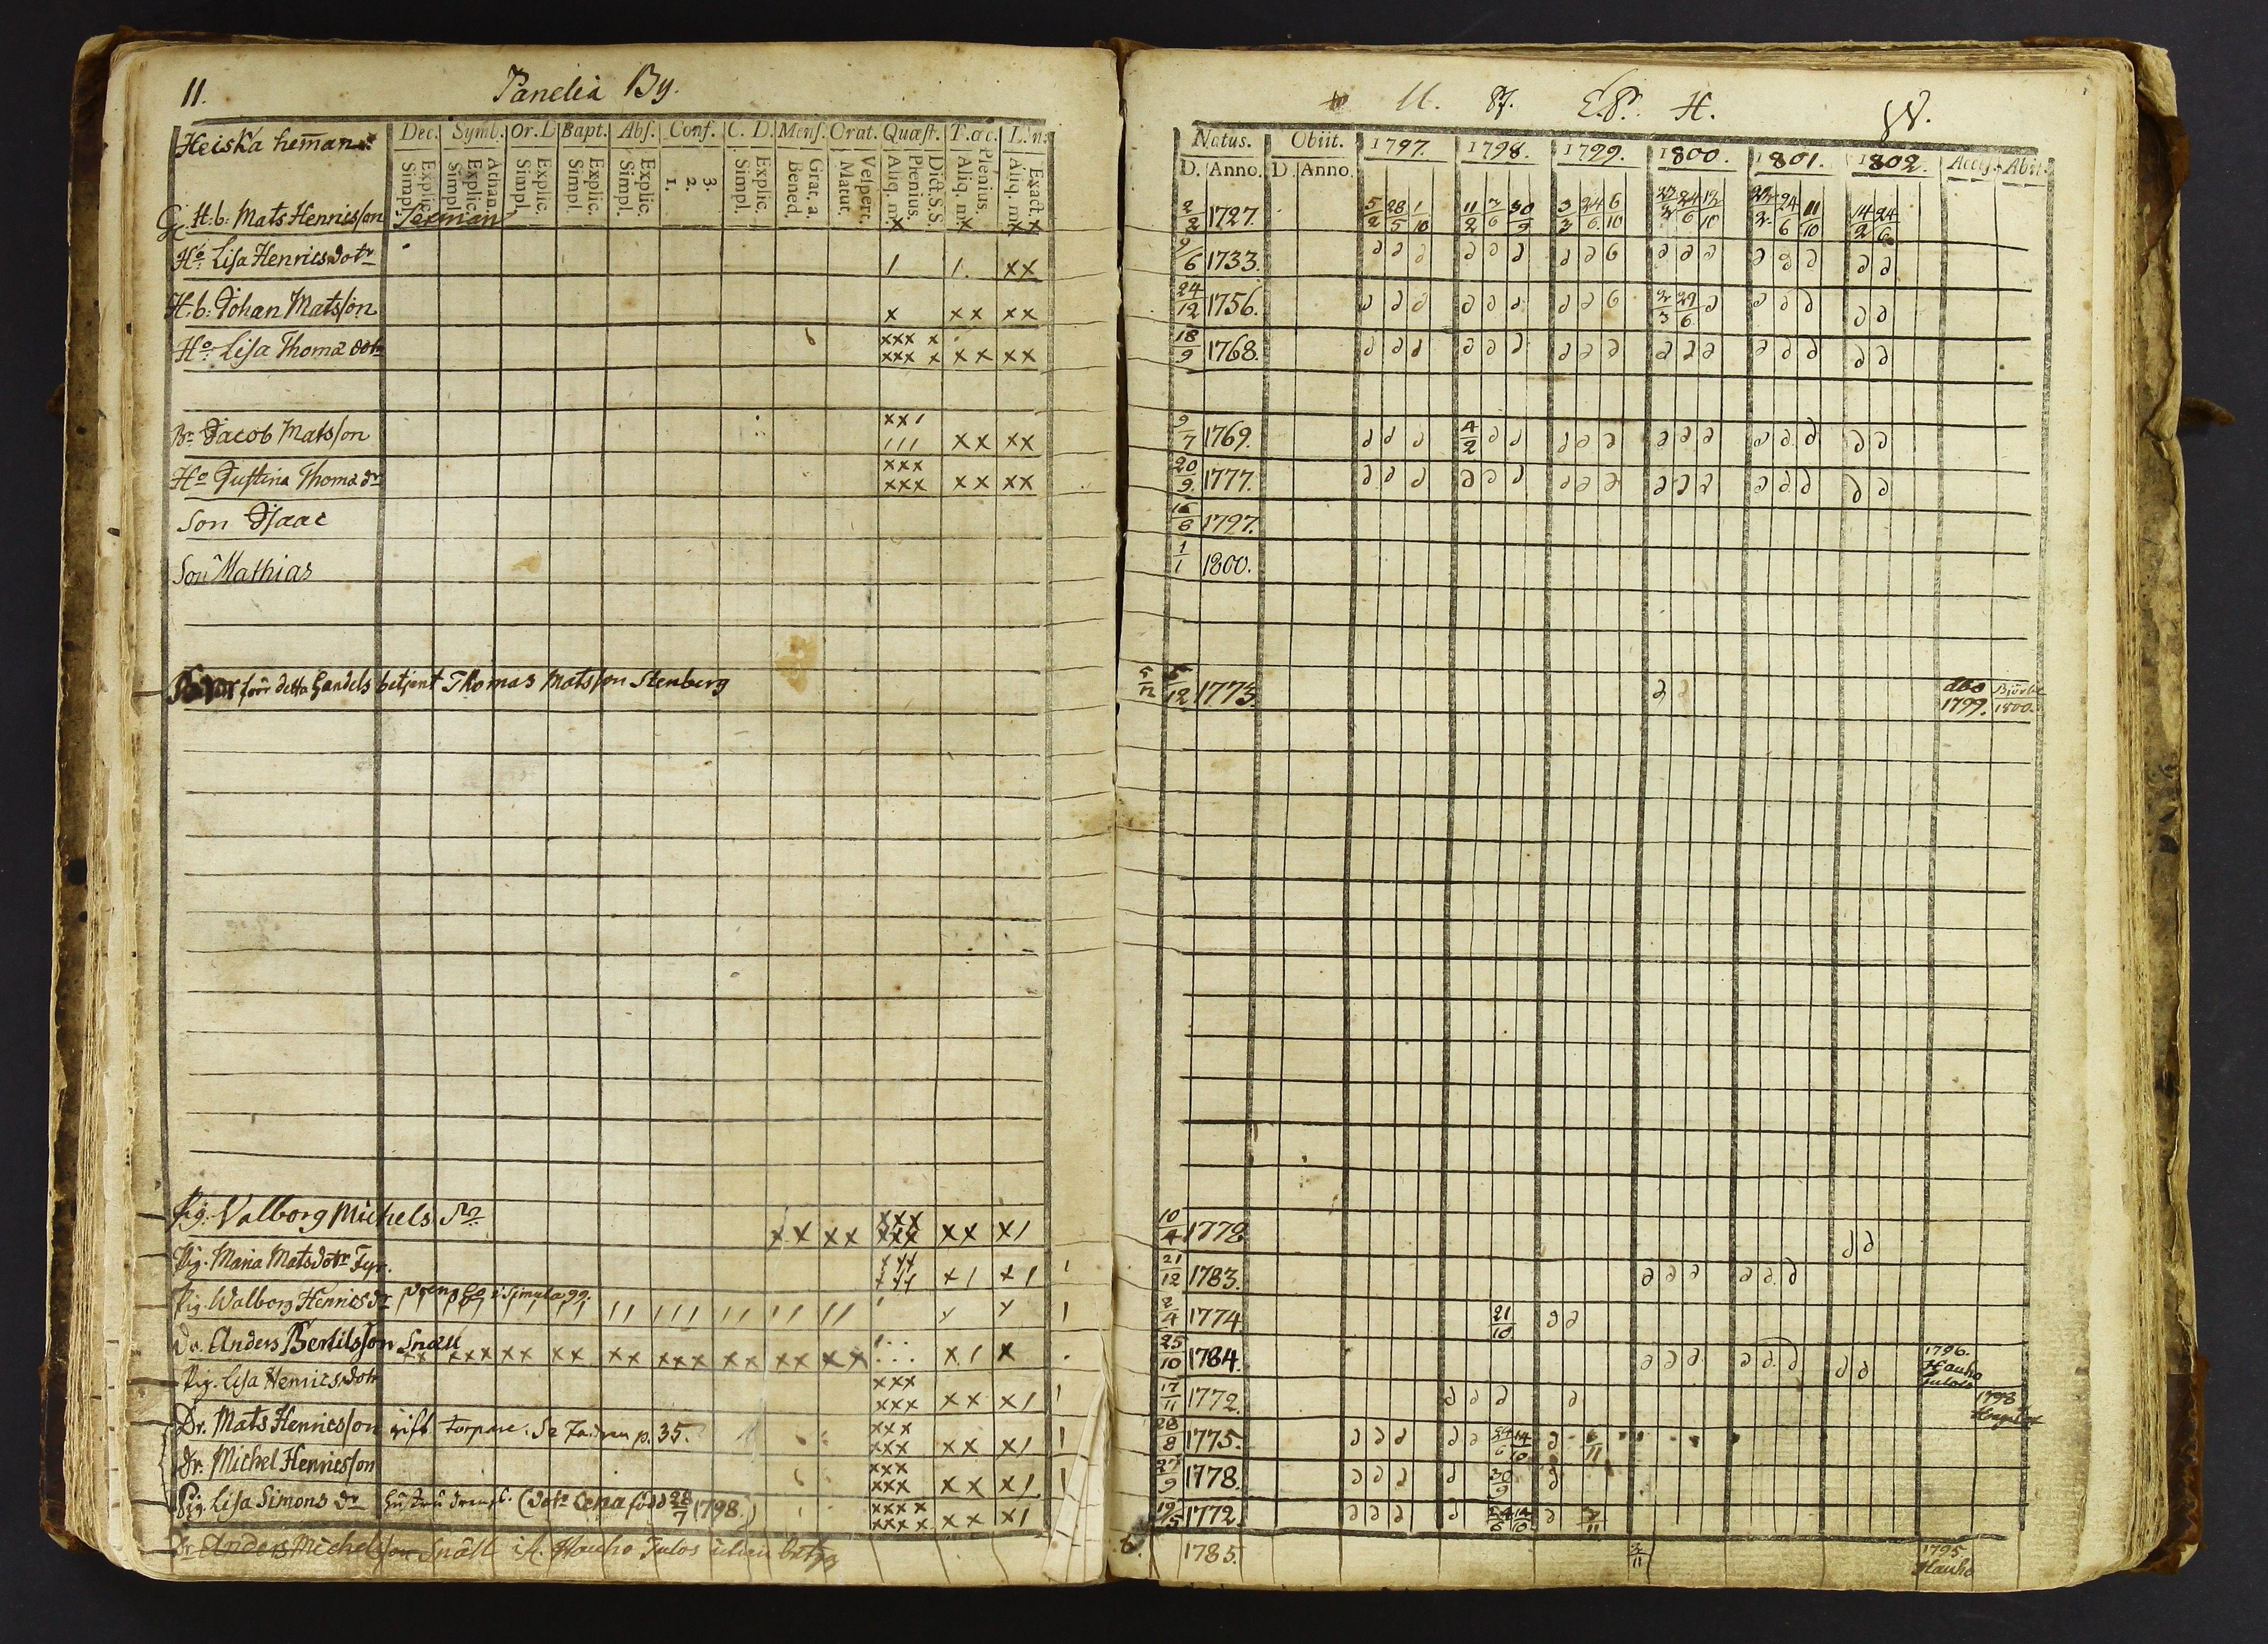 11. Panelia By. U. E.P. H. W.
Heiska heman
Dec. Symb. Or. D. Bapt. Abs. Conf. C. D. Mens. Orat. Quæst. L. n.
Natus. Obiit. 1797. 1798. 1799. 1800. 1801. 1802. Access. Abit.
Simpl. Explic. Simpl. Explic. Athan. Simpl. Explic. Simpl. Explic. Simpl. Explic. 1. 2. 3. Simpl. Explic. Bened. Grat. a. Matut. Vespert. Aliq. m. Plenius. Dict. S.S. Aliq. m. Plenius. Aliq. m. Exact.
D. Anno. D. Anno.
H.b. Mats Henricsson Texman x x xx 2/2 1727. 5/2 28/5 1/10 11/2 3/6 30/9 3/3 24/6 6/10 24/6 12/10 24/6 11/10 14/2 24/6
Ho. Lisa Henricsdotr 1 1. xx 9/6 1733. ∂ ∂ ∂ ∂ ∂ ∂ ∂ ∂ 6 ∂ ∂ ∂ ∂ ∂ ∂ ∂ ∂
H.b. Johan Matsson x xx xx 24/12 1756. ∂ ∂ ∂ ∂ ∂ ∂ ∂ ∂ 6 2/3 29/6 ∂ ∂ ∂ ∂ ∂ ∂
Ho. Lisa Thomæ dotr xxx x xxx x xx xx 18/9 1768. ∂ ∂ ∂ ∂ ∂ ∂ ∂ ∂ ∂ ∂ ∂ ∂ ∂ ∂ ∂ ∂ ∂
Br. Jacob Matsson xx1 111 xx xx 9/7 1769. ∂ ∂ ∂ 4/2 ∂ ∂ ∂ ∂ ∂ ∂ ∂ ∂ ∂ ∂ ∂ ∂ ∂
Ho Justina Thomæ dr xxx xxx xx xx 20/9 1777. ∂ ∂ ∂ ∂ ∂ ∂ ∂ ∂ ∂ ∂ ∂ ∂ ∂ ∂ ∂ ∂ ∂
Son Isaac 16/8 1797.
Son Mathias 1/1 1800.
förr detta Handels betjent Thomas Matsson Stenberg 5/12 5/12 1773. ∂ ∂ Åbo 1799. 1800.
Pig. Valborg Michels dr xx xx xxx xxx xx x1 10/4 1778 ∂ ∂
Pig. Maria Matsdotr Fyr. x1 x1 21/12 1783. ∂ ∂ ∂ ∂ ∂ ∂
Pig. Walborg Henrics dr Simula 99. 2/4 1774 21/10 ∂ ∂
Dr. Anders Bertilsson Snäll xx xxx xx xx xx xxx xx xx xx x1 x 25/10 1784. ∂ ∂ ∂ ∂ ∂ ∂ ∂ ∂ 1796. Hauho
Pig. Lisa Henricsdotr xxx xxx xx x1 17/11 1772. ∂ ∂ ∂ ∂ 1798
Dr. Mats Henricsson gift torpare. Se p. 35. xxx xxx xx x1 28/8 1775. ∂ ∂ ∂ ∂ ∂ 24/6 14/10 ∂ 6/11
Dr. Michel Henricsson xxx xxx xx x1 27/9 1778. ∂ ∂ ∂ ∂ 30/9 ∂
Pig. Lisa Simons dr hustru (dotr Lena född 28/7 1798.) xxxx xxxx xx x1 19/5 1772. ∂ ∂ ∂ ∂ 24/6 14/10 ∂ 3/11
Dr Anders Michelsson Snäll Hauho Tulos 1785. 3/11 1795. Hauho